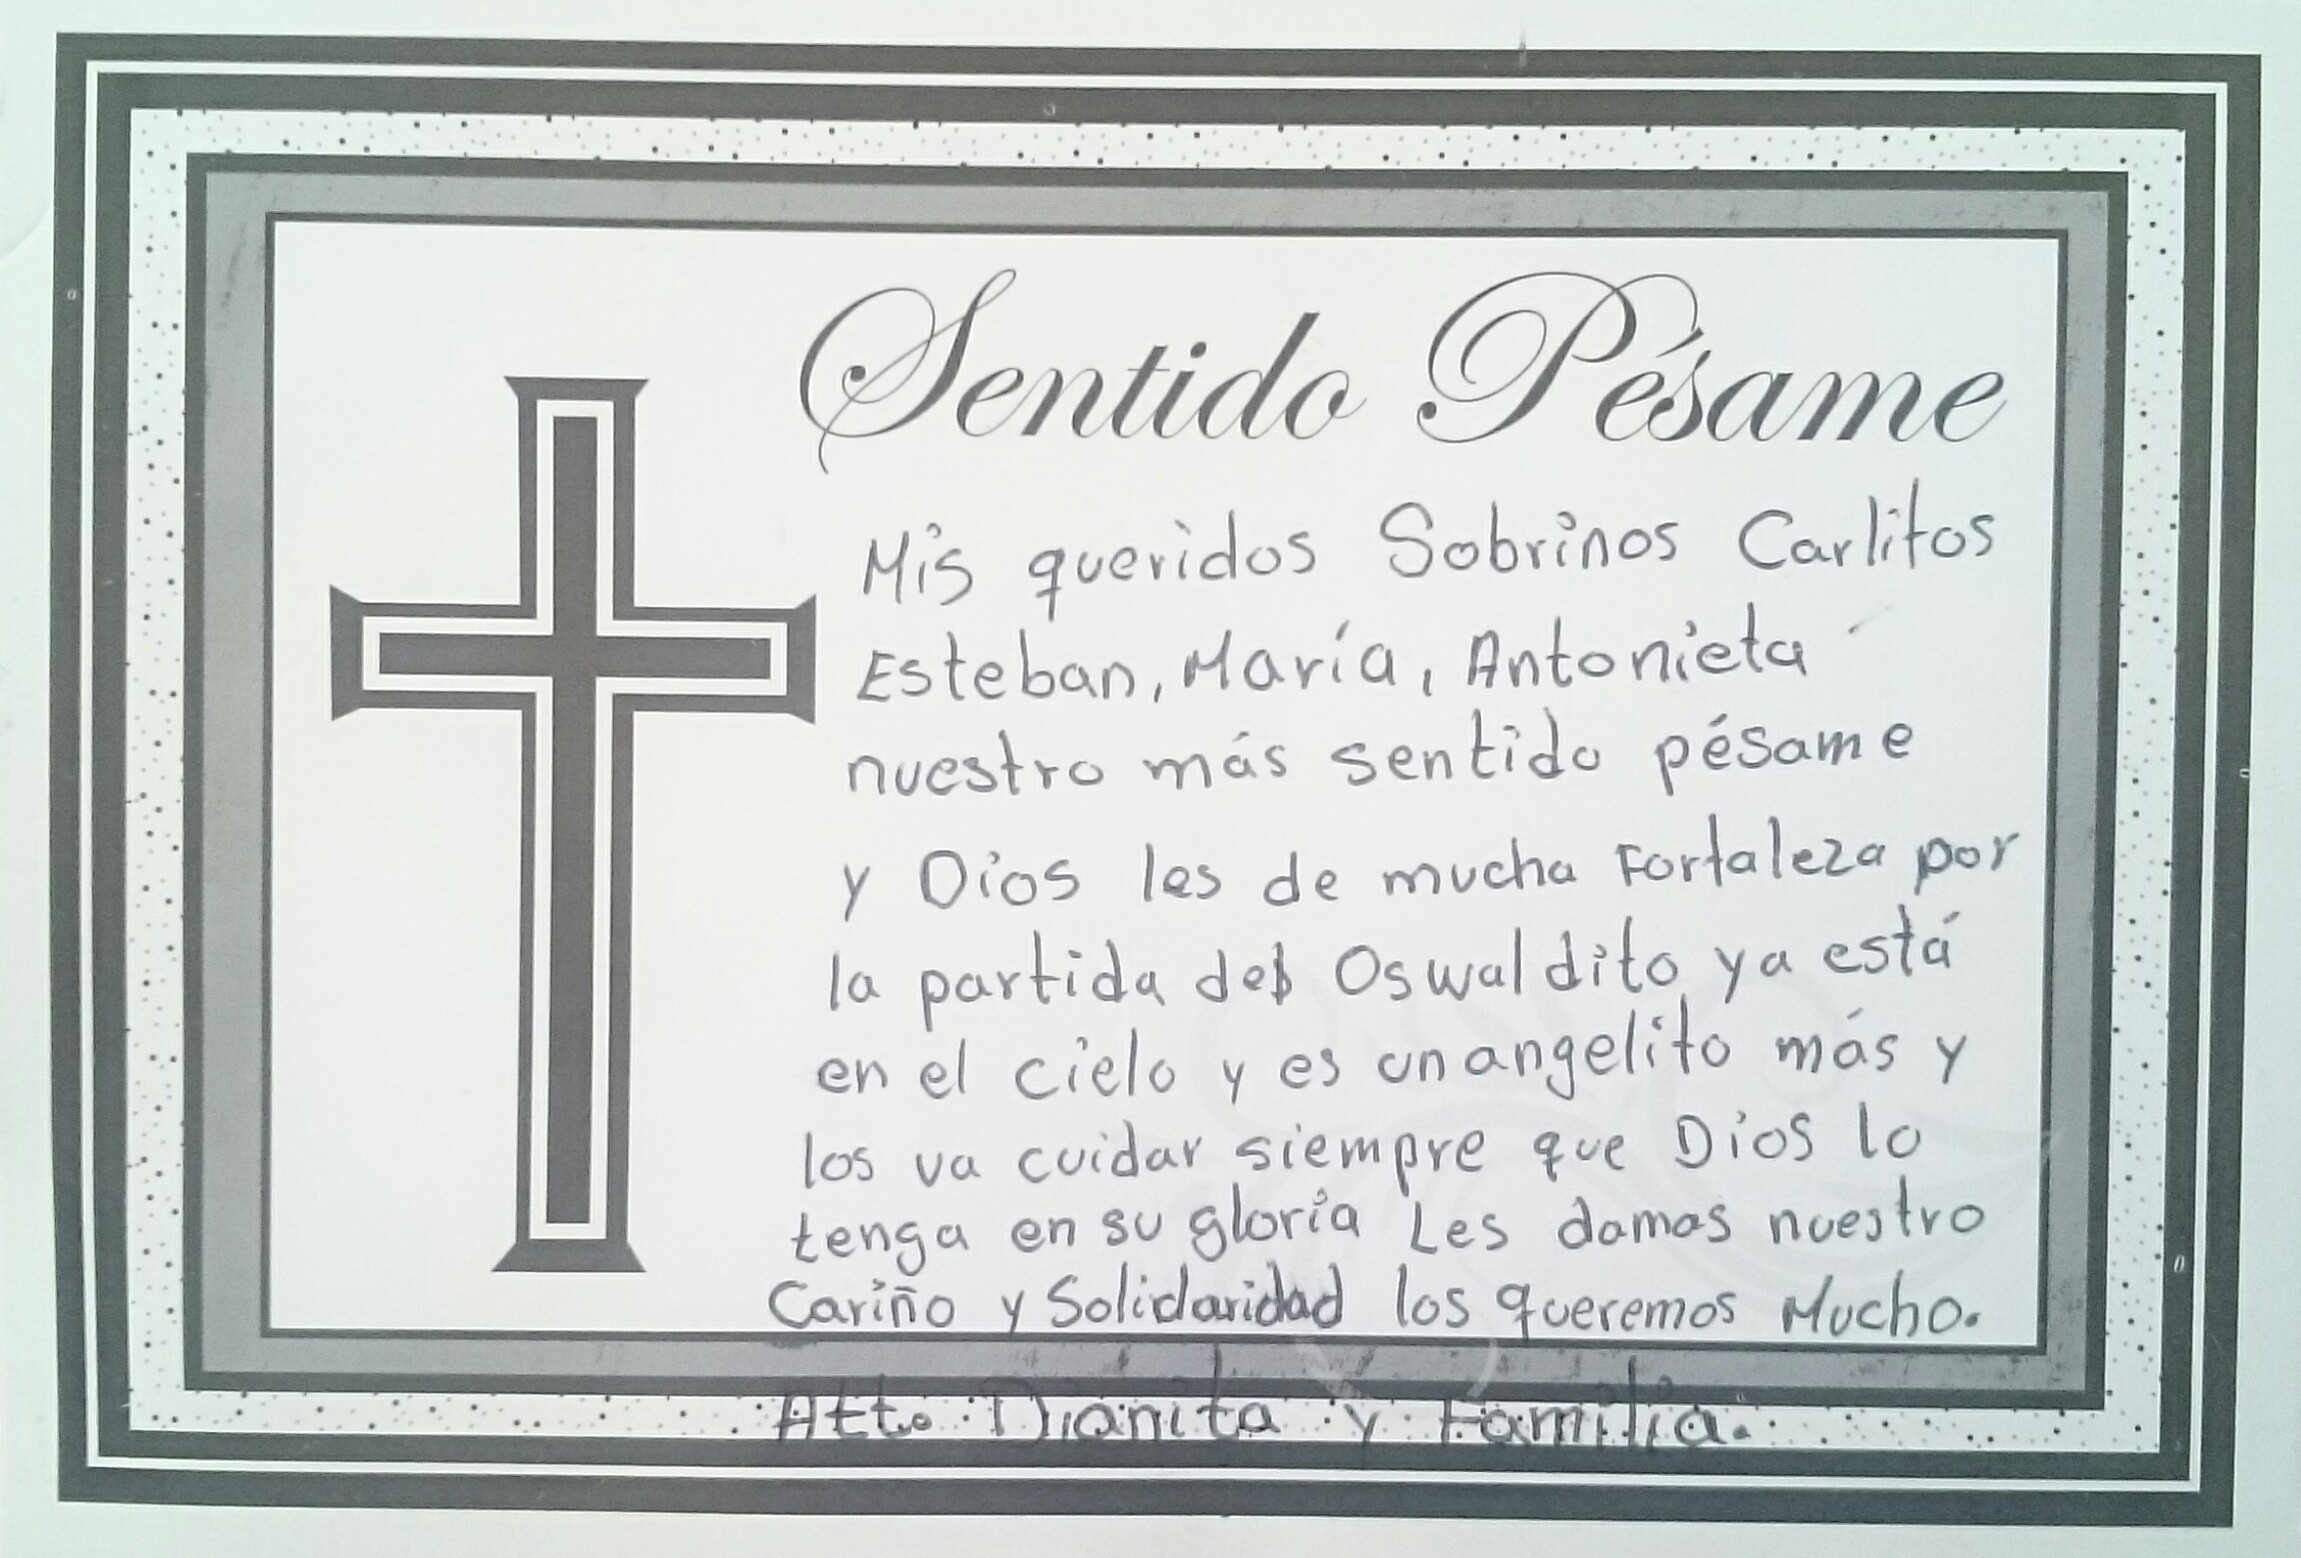 Sentido Pésame
Mis queridos Sobrinos Carlitos
Esteban, María, Antonieta
nuestro más sentido pésame
y Dios les de mucha Fortaleza por
la partida del Oswaldito ya está
en el cielo y es un angelito más y
los va cuidar siempre que Dios lo
tenga en su gloria Les damos nuestro
Cariño y Solidaridad los queremos Mucho.
Att. Dianita y Familia.